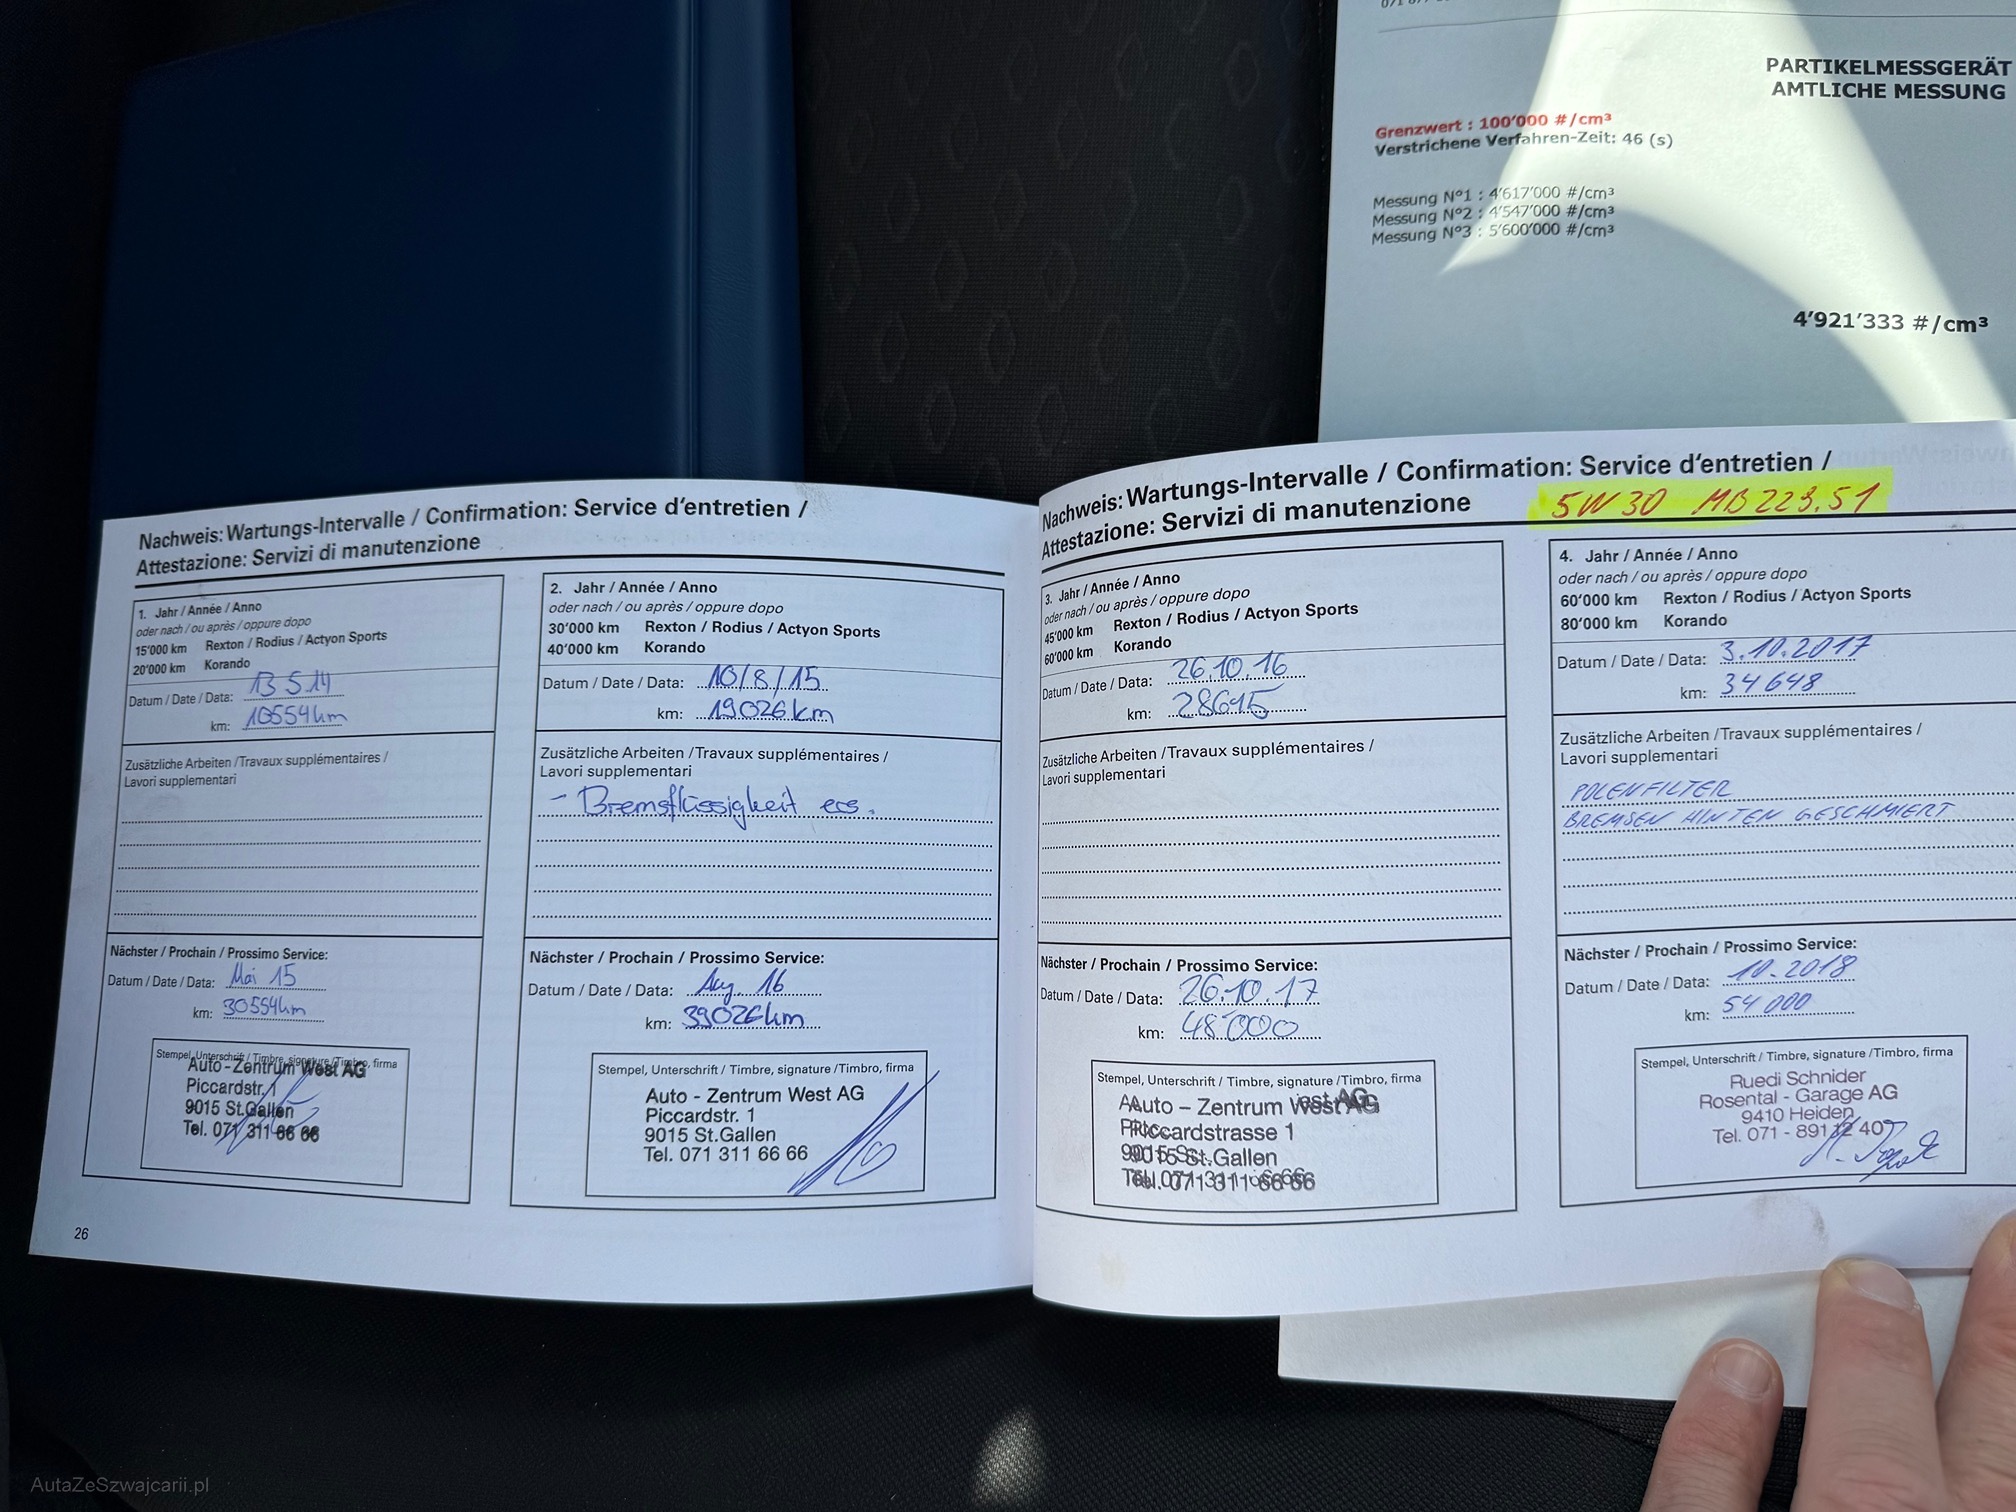 PARTIKELMESSGERÄT
AMTLICHE MESSUNG
Grenzwert : 100'000 #/cm³
Verstrichene Verfahren-Zeit: 46 (s)
Messung N°1 : 4'617'000 #/cm³
Messung N°2 : 4'547'000 #/cm³
Messung N°3 : 5'600'000 #/cm³
4'921'333 #/cm³
Nachweis: Wartungs-Intervalle / Confirmation: Service d'entretien /
Attestazione: Servizi di manutenzione
1. Jahr / Année / Anno
oder nach / ou après / oppure dopo
15'000 km Rexton / Rodius / Actyon Sports
20'000 km Korando
Datum / Date / Data: 13 5.14
km: 10554km
Zusätzliche Arbeiten / Travaux supplémentaires /
Lavori supplementari
Nächster / Prochain / Prossimo Service:
Datum / Date / Data: Mai 15
km: 30554km
Stempel, Unterschrift / Timbre, signature / Timbro, firma
Auto - Zentrum West AG
Piccardstr. 1
9015 St.Gallen
Tel. 071 311 66 66
26
2. Jahr / Année / Anno
oder nach / ou après / oppure dopo
30'000 km Rexton / Rodius / Actyon Sports
40'000 km Korando
Datum / Date / Data: 10/8/15
km: 19026km
Zusätzliche Arbeiten / Travaux supplémentaires /
Lavori supplementari
- Bremsflüssigkeit ers.
Nächster / Prochain / Prossimo Service:
Datum / Date / Data: Aug. 16
km: 39026km
Stempel, Unterschrift / Timbre, signature / Timbro, firma
Auto - Zentrum West AG
Piccardstr. 1
9015 St.Gallen
Tel. 071 311 66 66
Nachweis: Wartungs-Intervalle / Confirmation: Service d'entretien /
Attestazione: Servizi di manutenzione
5W30 MB 223.51
3. Jahr / Année / Anno
oder nach / ou après / oppure dopo
45'000 km Rexton / Rodius / Actyon Sports
60'000 km Korando
Datum / Date / Data: 26.10.16
km: 28615
Zusätzliche Arbeiten / Travaux supplémentaires /
Lavori supplementari
Nächster / Prochain / Prossimo Service:
Datum / Date / Data: 26.10.17
km: 48'000
Stempel, Unterschrift / Timbre, signature / Timbro, firma
Auto – Zentrum West AG
Piccardstrasse 1
9015 St.Gallen
Tel. 071 311 66 66
4. Jahr / Année / Anno
oder nach / ou après / oppure dopo
60'000 km Rexton / Rodius / Actyon Sports
80'000 km Korando
Datum / Date / Data: 3.10.2017
km: 34648
Zusätzliche Arbeiten / Travaux supplémentaires /
Lavori supplementari
POLENFILTER
BREMSEN HINTEN GESCHMIERT
Nächster / Prochain / Prossimo Service:
Datum / Date / Data: 10.2018
km: 54 000
Stempel, Unterschrift / Timbre, signature / Timbro, firma
Ruedi Schnider
Rosental - Garage AG
9410 Heiden
Tel. 071 - 891 12 40
AutaZeSzwajcarii.pl